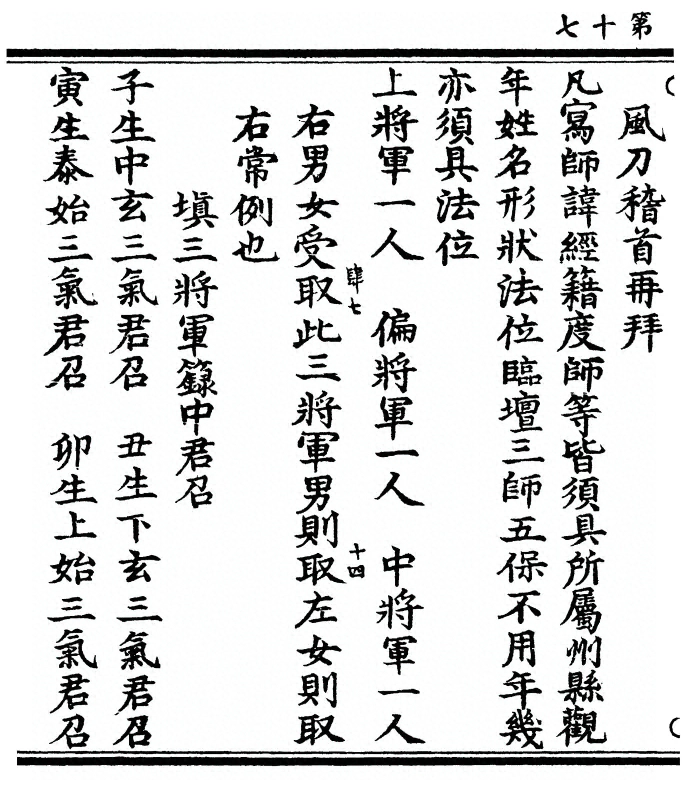 第十七
風刀稽首再拜
凡寫師諱經籍度師等皆須具所屬州縣觀
年姓名形狀法位臨壇三師五保不用年幾
亦須具法位
上將軍一人　偏將軍一人　中將軍一人
肆七
十四
右男女受取此三將軍男則取左女則取
右常例也
塡三將軍籙中君召
子生中玄三氣君召　丑生下玄三氣君召
寅生泰始三氣君召　卯生上始三氣君召